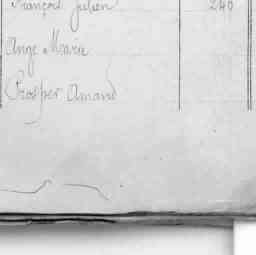 François Julien 240
Ange Marie
Prosper Amand